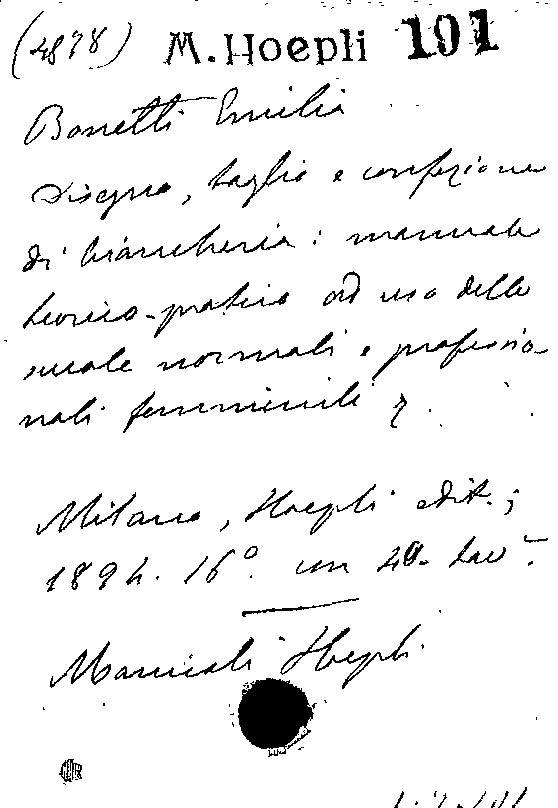 (4878) M. Hoepli 101
Bonetti Emilia
Disegno, taglio e confezione
di biancheria: manuale
teorico-pratico ad uso delle
scuole normali e professio-
nali femminili
Milano, Hoepli edit.;
1894. 16° con 40. tav.
Manuali Hoepli